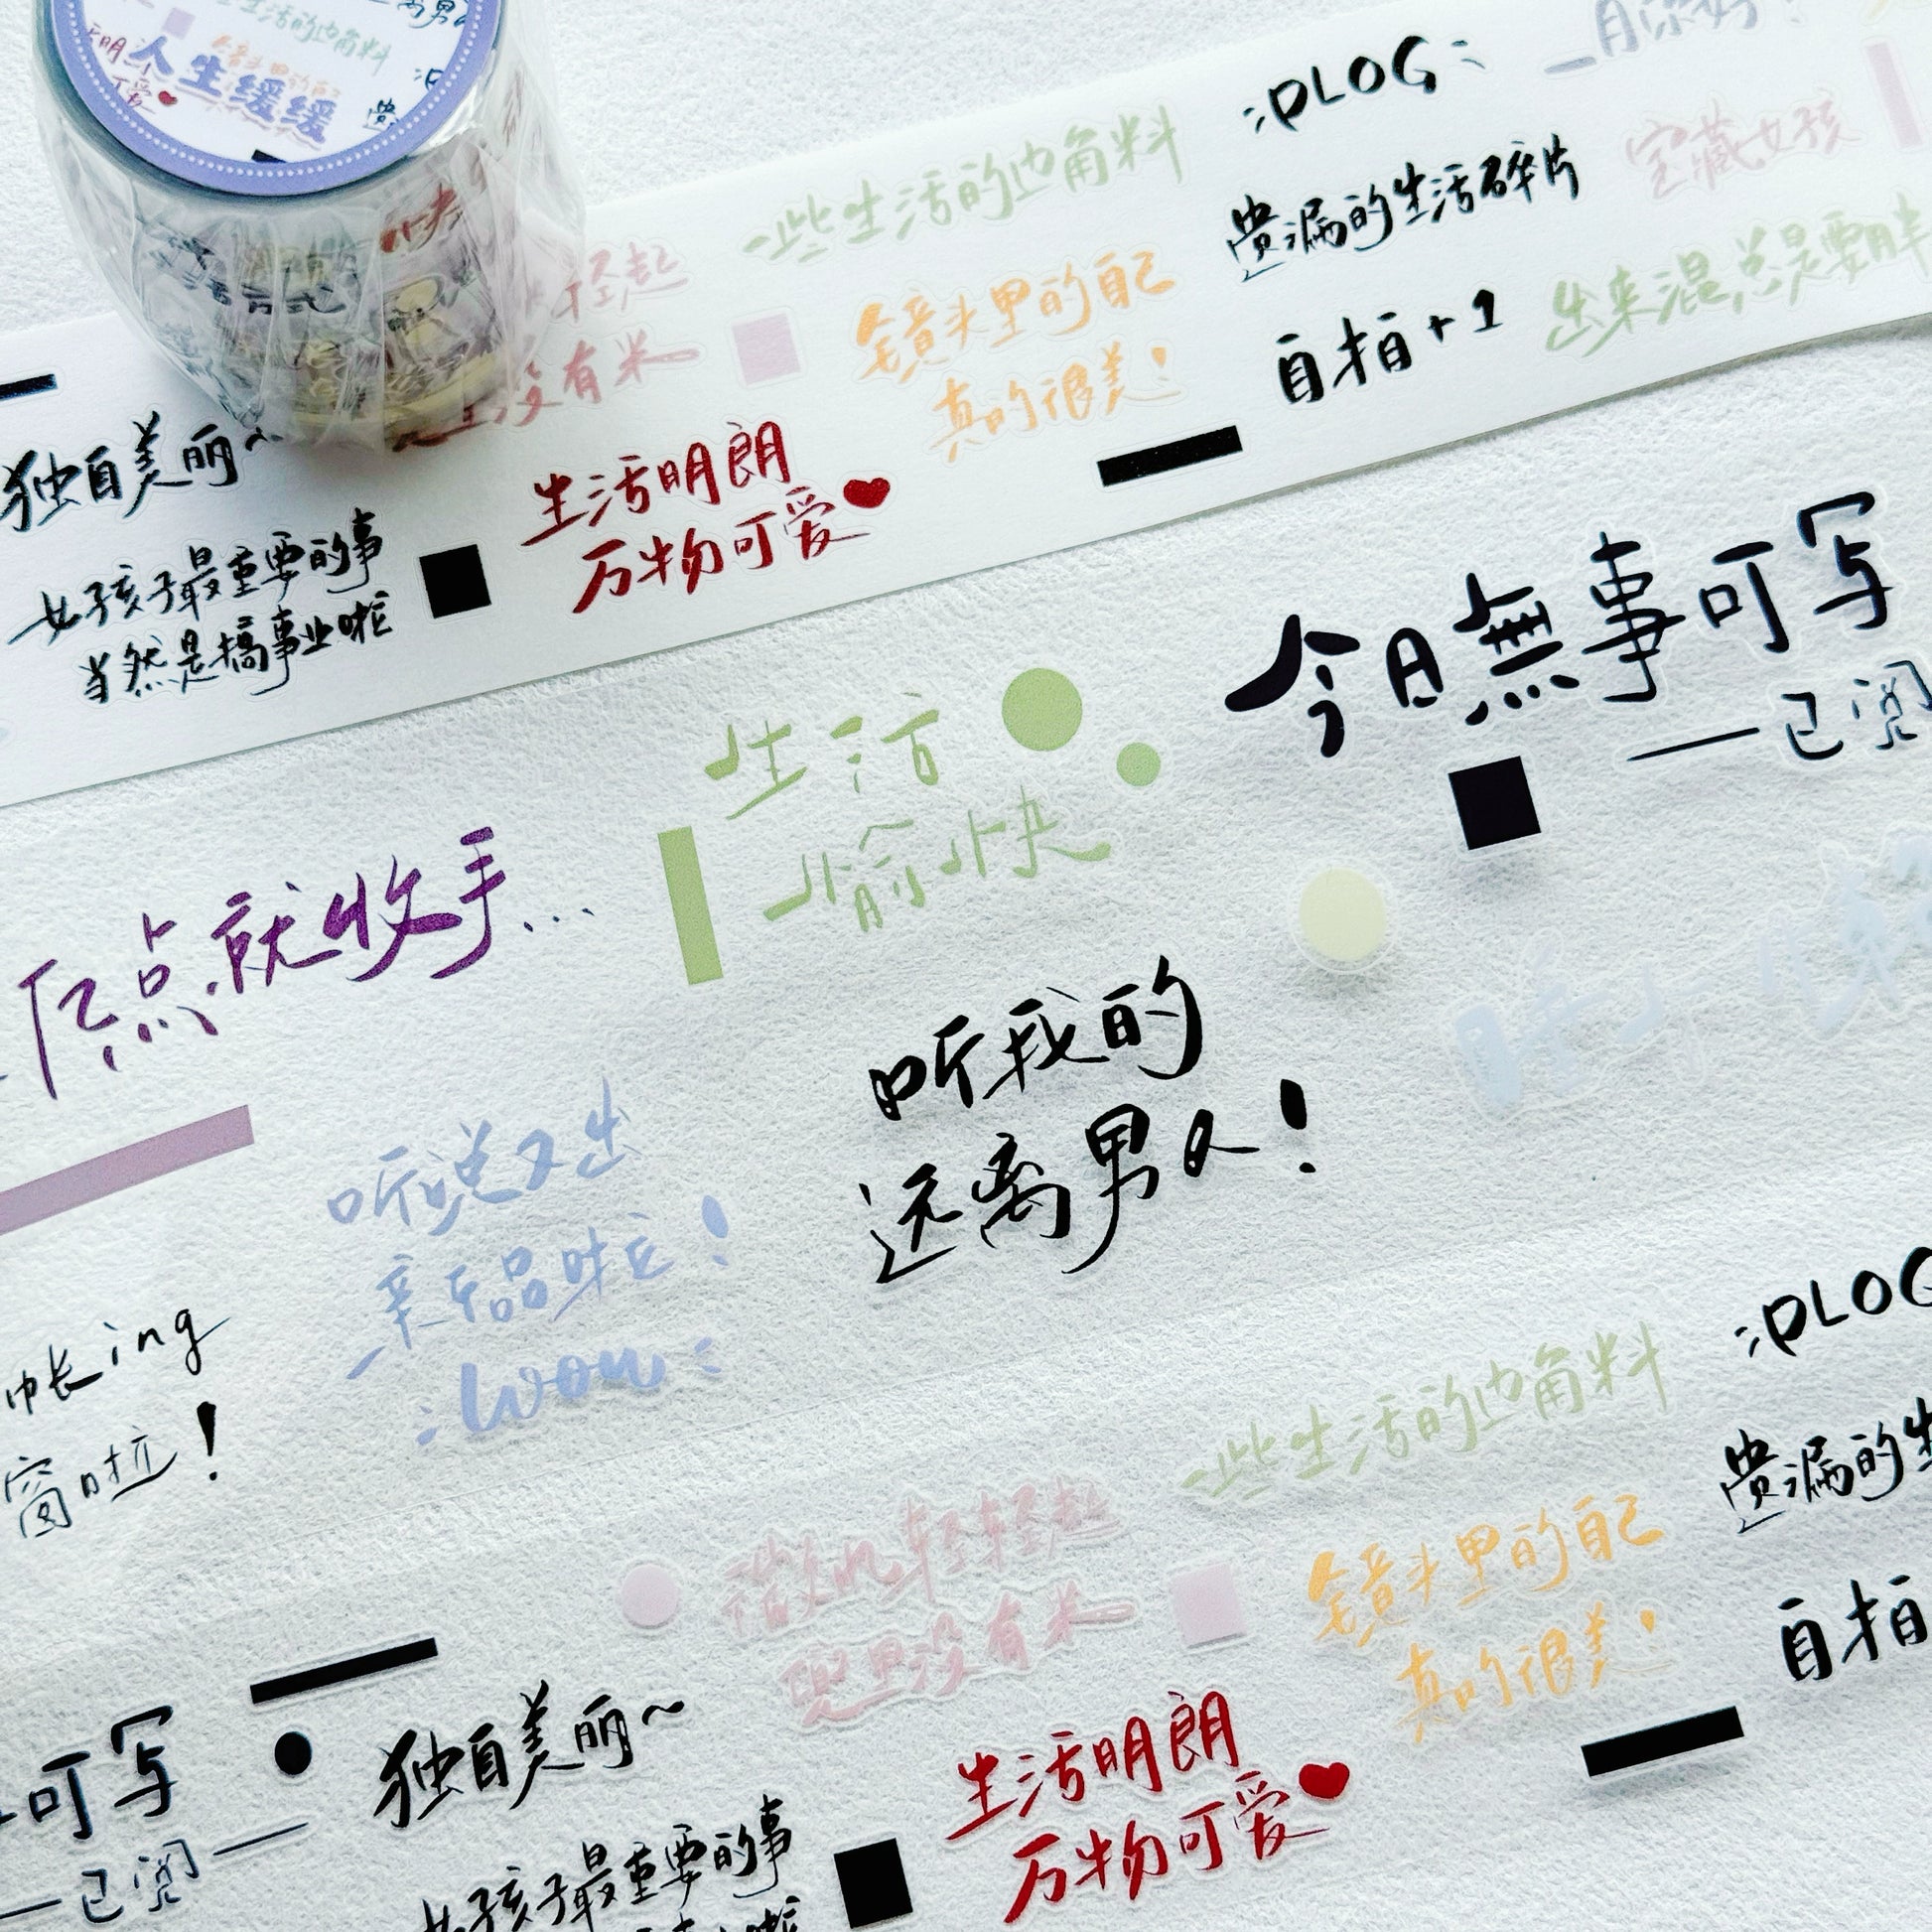 人生缓缓
一些生活的边角料
:PLOG:
一月你好!
遗漏的生活碎片
宝藏女孩
轻起
没有米
镜头里的自己
真的很美!
自拍+1
出来混总是要胖
独自美丽~
生活明朗
万物可爱
女孩子最重要的事
当然是搞事业啦
今日無事可写
——已阅
生活
愉快
点就收手...
听我的
远离男人!
听说又出
新品啦!
:Wow:
帐ing
窗啦!
一些生活的边角料
:PLOG
遗漏的生
微风轻轻起
兜里没有米
镜头里的自己
真的很美!
自拍
可写
——已阅——
独自美丽~
生活明朗
万物可爱
女孩子最重要的事